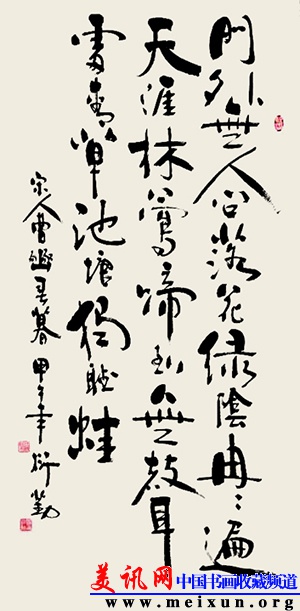 門外無人問落花緑陰冉〻遍
天涯林鶯啼到無聲
處青草池塘獨聽蛙
宋人曹豳春暮 甲午年 衍勤
美讯网 中国书画收藏频道
www.meixun.org